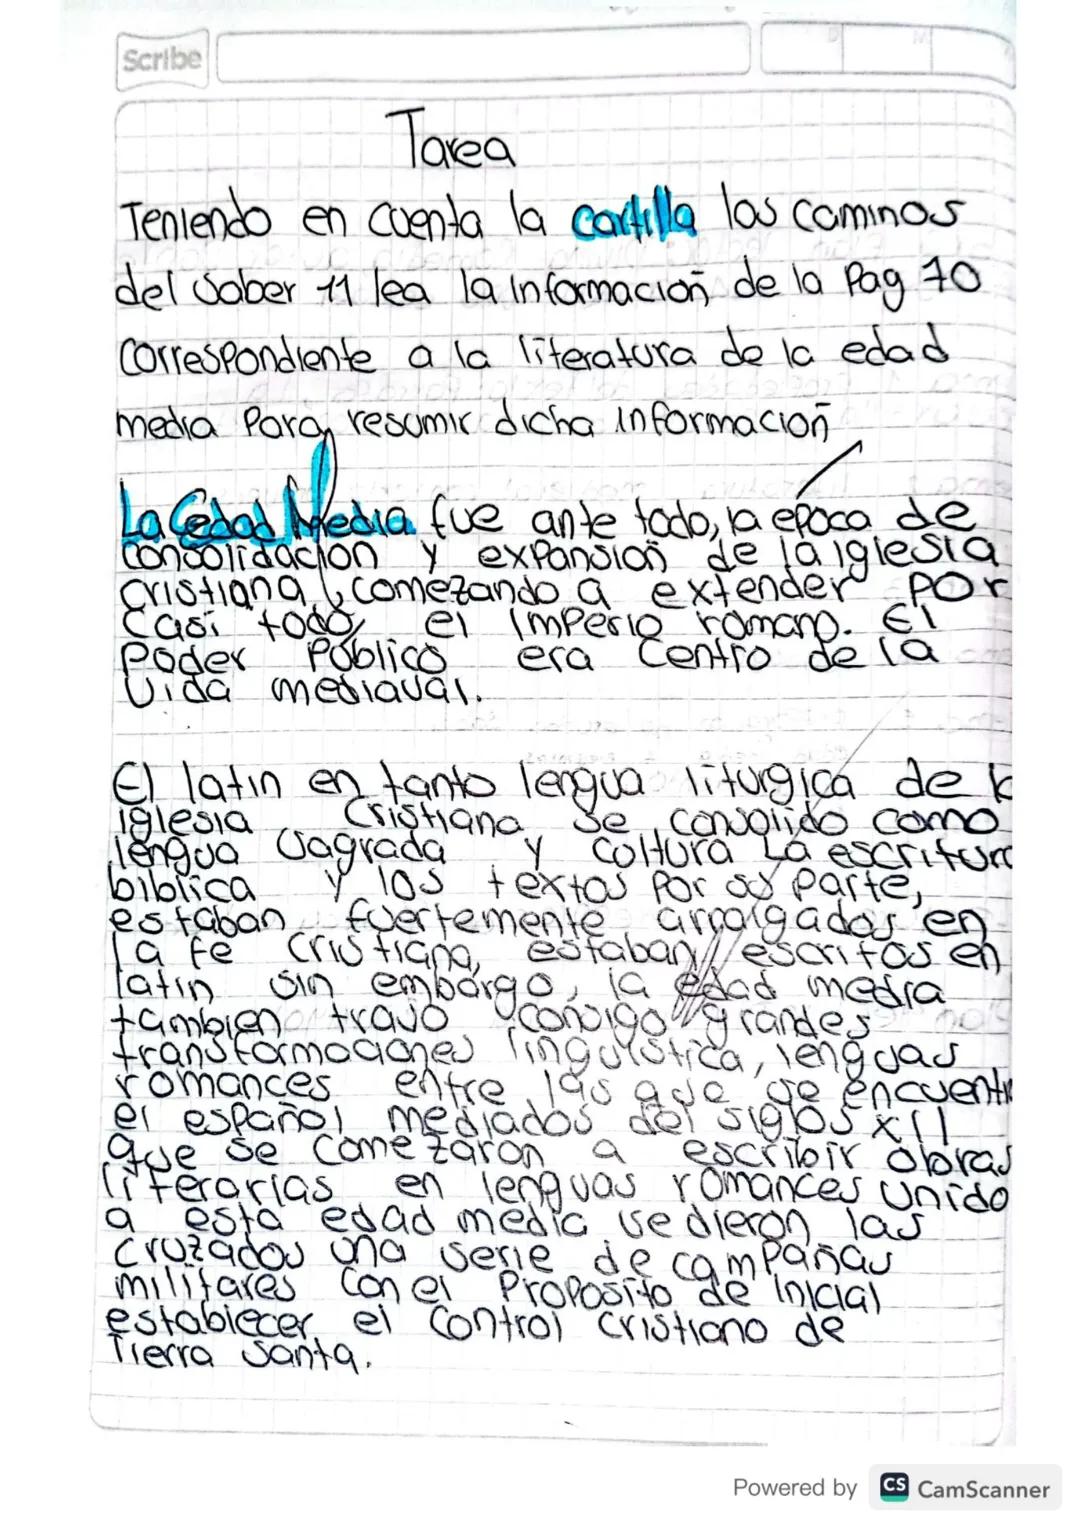 Scribe
Tarea
Teniendo en cuenta la cartilla los caminos
del saber 11 lea la informacion de la Pag 70
correspondiente a la literatura de la edad
media Para resumir dicha informacion
La Edad Media fue ante todo, la epoca de
consolidacion y expansion de la iglesia
cristiana, comezando a extender por
casi todo el imperio romano. El
Poder Publico era centro de la
vida mediaval.
El latin en tanto lengua liturgica de l
iglesia cristiana se consolido como
lengua sagrada y coltura La escritura
biblica y los textos por su parte,
estaban fuertemente arraigados en
la fe cristiana, estaban escritos en
latin sin embargo, la edad media
tambien trajo consigo grandes
transformaciones lingüistica, lenguas
romances entre las que se encuentr
el español mediados del siglos XII
que se comezaron a escribir obras
literarias en lenguas romances unido
a esta edad media se dieron las
cruzados una serie de campañas
militares con el proposito de inicial
establecer el control cristiano de
Tierra santa.
Powered by CS CamScanner